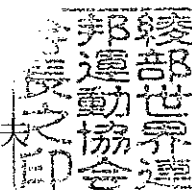 綾部世界連
邦運動協会
長之印